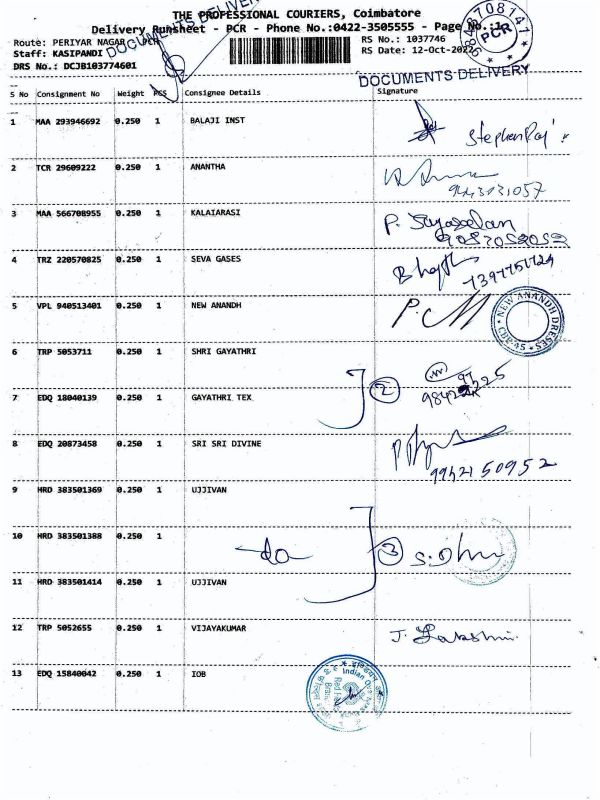 THE PROFESSIONAL COURIERS, Coimbatore
Delivery Runsheet - PCR - Phone No.:0422-3505555 - Page No.:1
Route: PERIYAR NAGAR - PCR
RS No.: 1037746
Staff: KASIPANDI
RS Date: 12-Oct-2022
DRS No.: DCJB103774601
DOCUMENTS DELIVERY
DOCUMENTS DELIVERY
PCR
S No Consignment No Weight PCS Consignee Details Signature
1 MAA 293946692 0.250 1 BALAJI INST
StephenRaj
2 TCR 29609222 0.250 1 ANANTHA
3 MAA 566708955 0.250 1 KALAIARASI
4 TRZ 220570825 0.250 1 SEVA GASES
5 VPL 940513401 0.250 1 NEW ANANDH
NEW ANANDH DRESES CBE-45
6 TRP 5053711 0.250 1 SHRI GAYATHRI
2
7 EDQ 18040139 0.250 1 GAYATHRI TEX
8 EDQ 20873458 0.250 1 SRI SRI DIVINE
9942150952
9 HRD 383501369 0.250 1 UJJIVAN
10 HRD 383501388 0.250 1
do 3
11 HRD 383501414 0.250 1 UJJIVAN
12 TRP 5052655 0.250 1 VIJAYAKUMAR
J. Lakshmi
13 EDQ 15840042 0.250 1 IOB